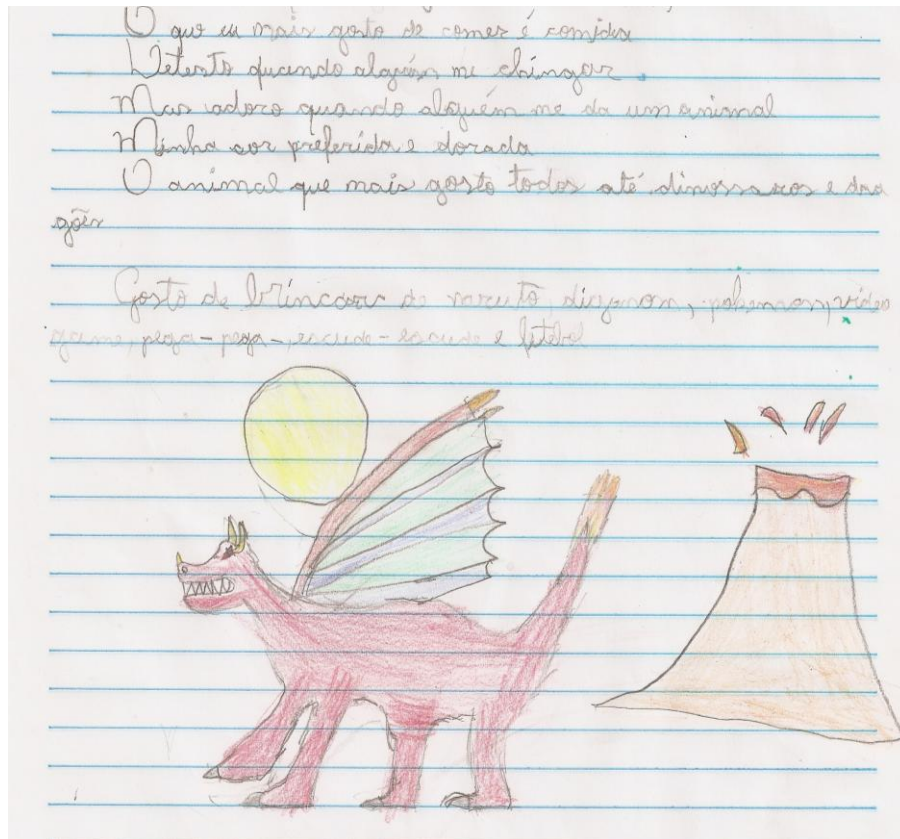 O que eu mais gosto de comer é comida
Detesto quando alguém me chingar.
Mas adoro quando alguém me da um animal
Minha cor preferida e dorada
O animal que mais gosto todos até dinossauros e dra
gões
Gosto de brincar de naruto, digymom, pokemon, video
game, pega-pega-, escude-escude e futebol